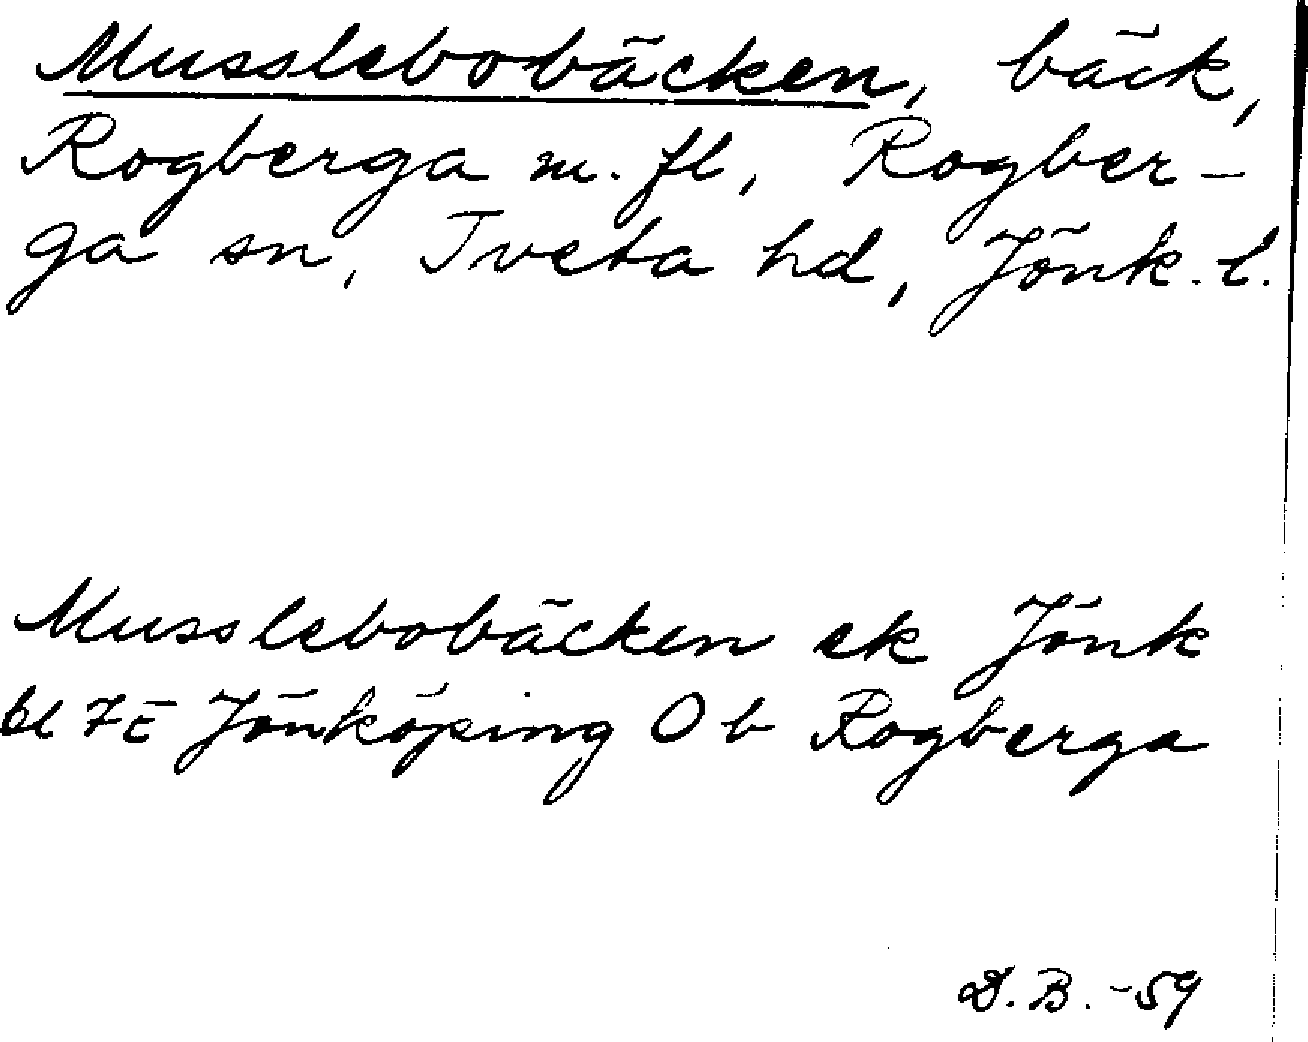 Musslebobäcken, bäck,
Rogberga m. fl, Rogber-
ga sn, Tveta hd, Jönk. l.
Musslebobäcken ek Jönk
bl 7E Jönköping O b Rogberga
D.B. -59